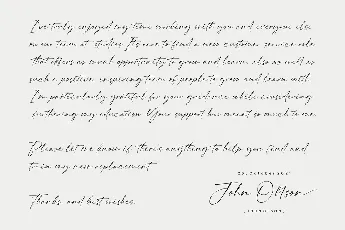 I've truly enjoyed my time working with you and everyone else
on our team at studios. It's rare to find a new customer service role
that offers as much opportunity to grow and learn, also as well as
such a positive, inspiring team of people to grow and learn with.
I'm particularly grateful for your guidance while considering
furthering my education. Your support has meant so much to me.
Please let me know if there's anything to help you find and
train my new replacement.
Thanks and best wishes.
John Ollson